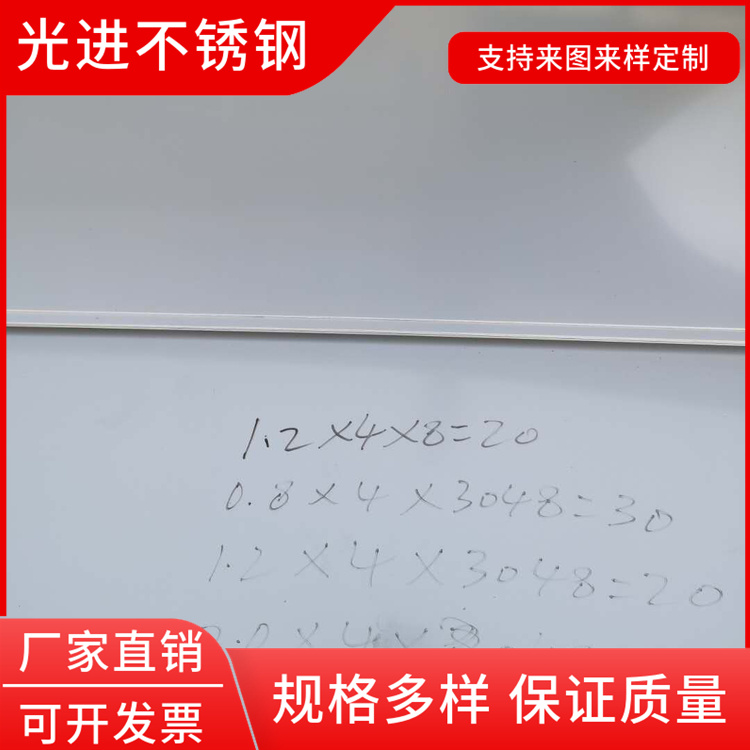 光进不锈钢
支持来图来样定制
1.2×4×8=20
0.8×4×3048=30
1.2×4×3048=20
厂家直销
可开发票
规格多样 保证质量